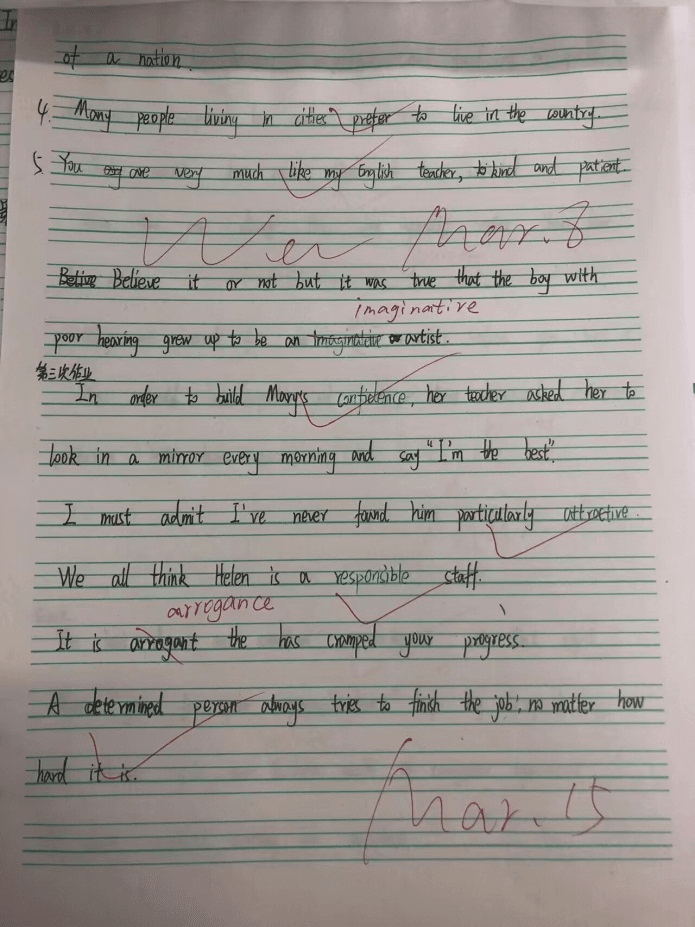 of a nation.
4. Many people living in cities prefer to live in the country.
5. You are very much like my English teacher, kind and patient.
Mar. 8
Believe it or not but it was true that the boy with
imaginative
poor hearing grew up to be an imaginative artist.
第三次作业
In order to build Mary's confidence, her teacher asked her to
look in a mirror every morning and say "I'm the best".
I must admit I've never found him particularly attractive.
We all think Helen is a responsible staff.
arrogance
It is arrogant the has cramped your progress.
A determined person always tries to finish the job, no matter how
hard it is.
Mar. 15